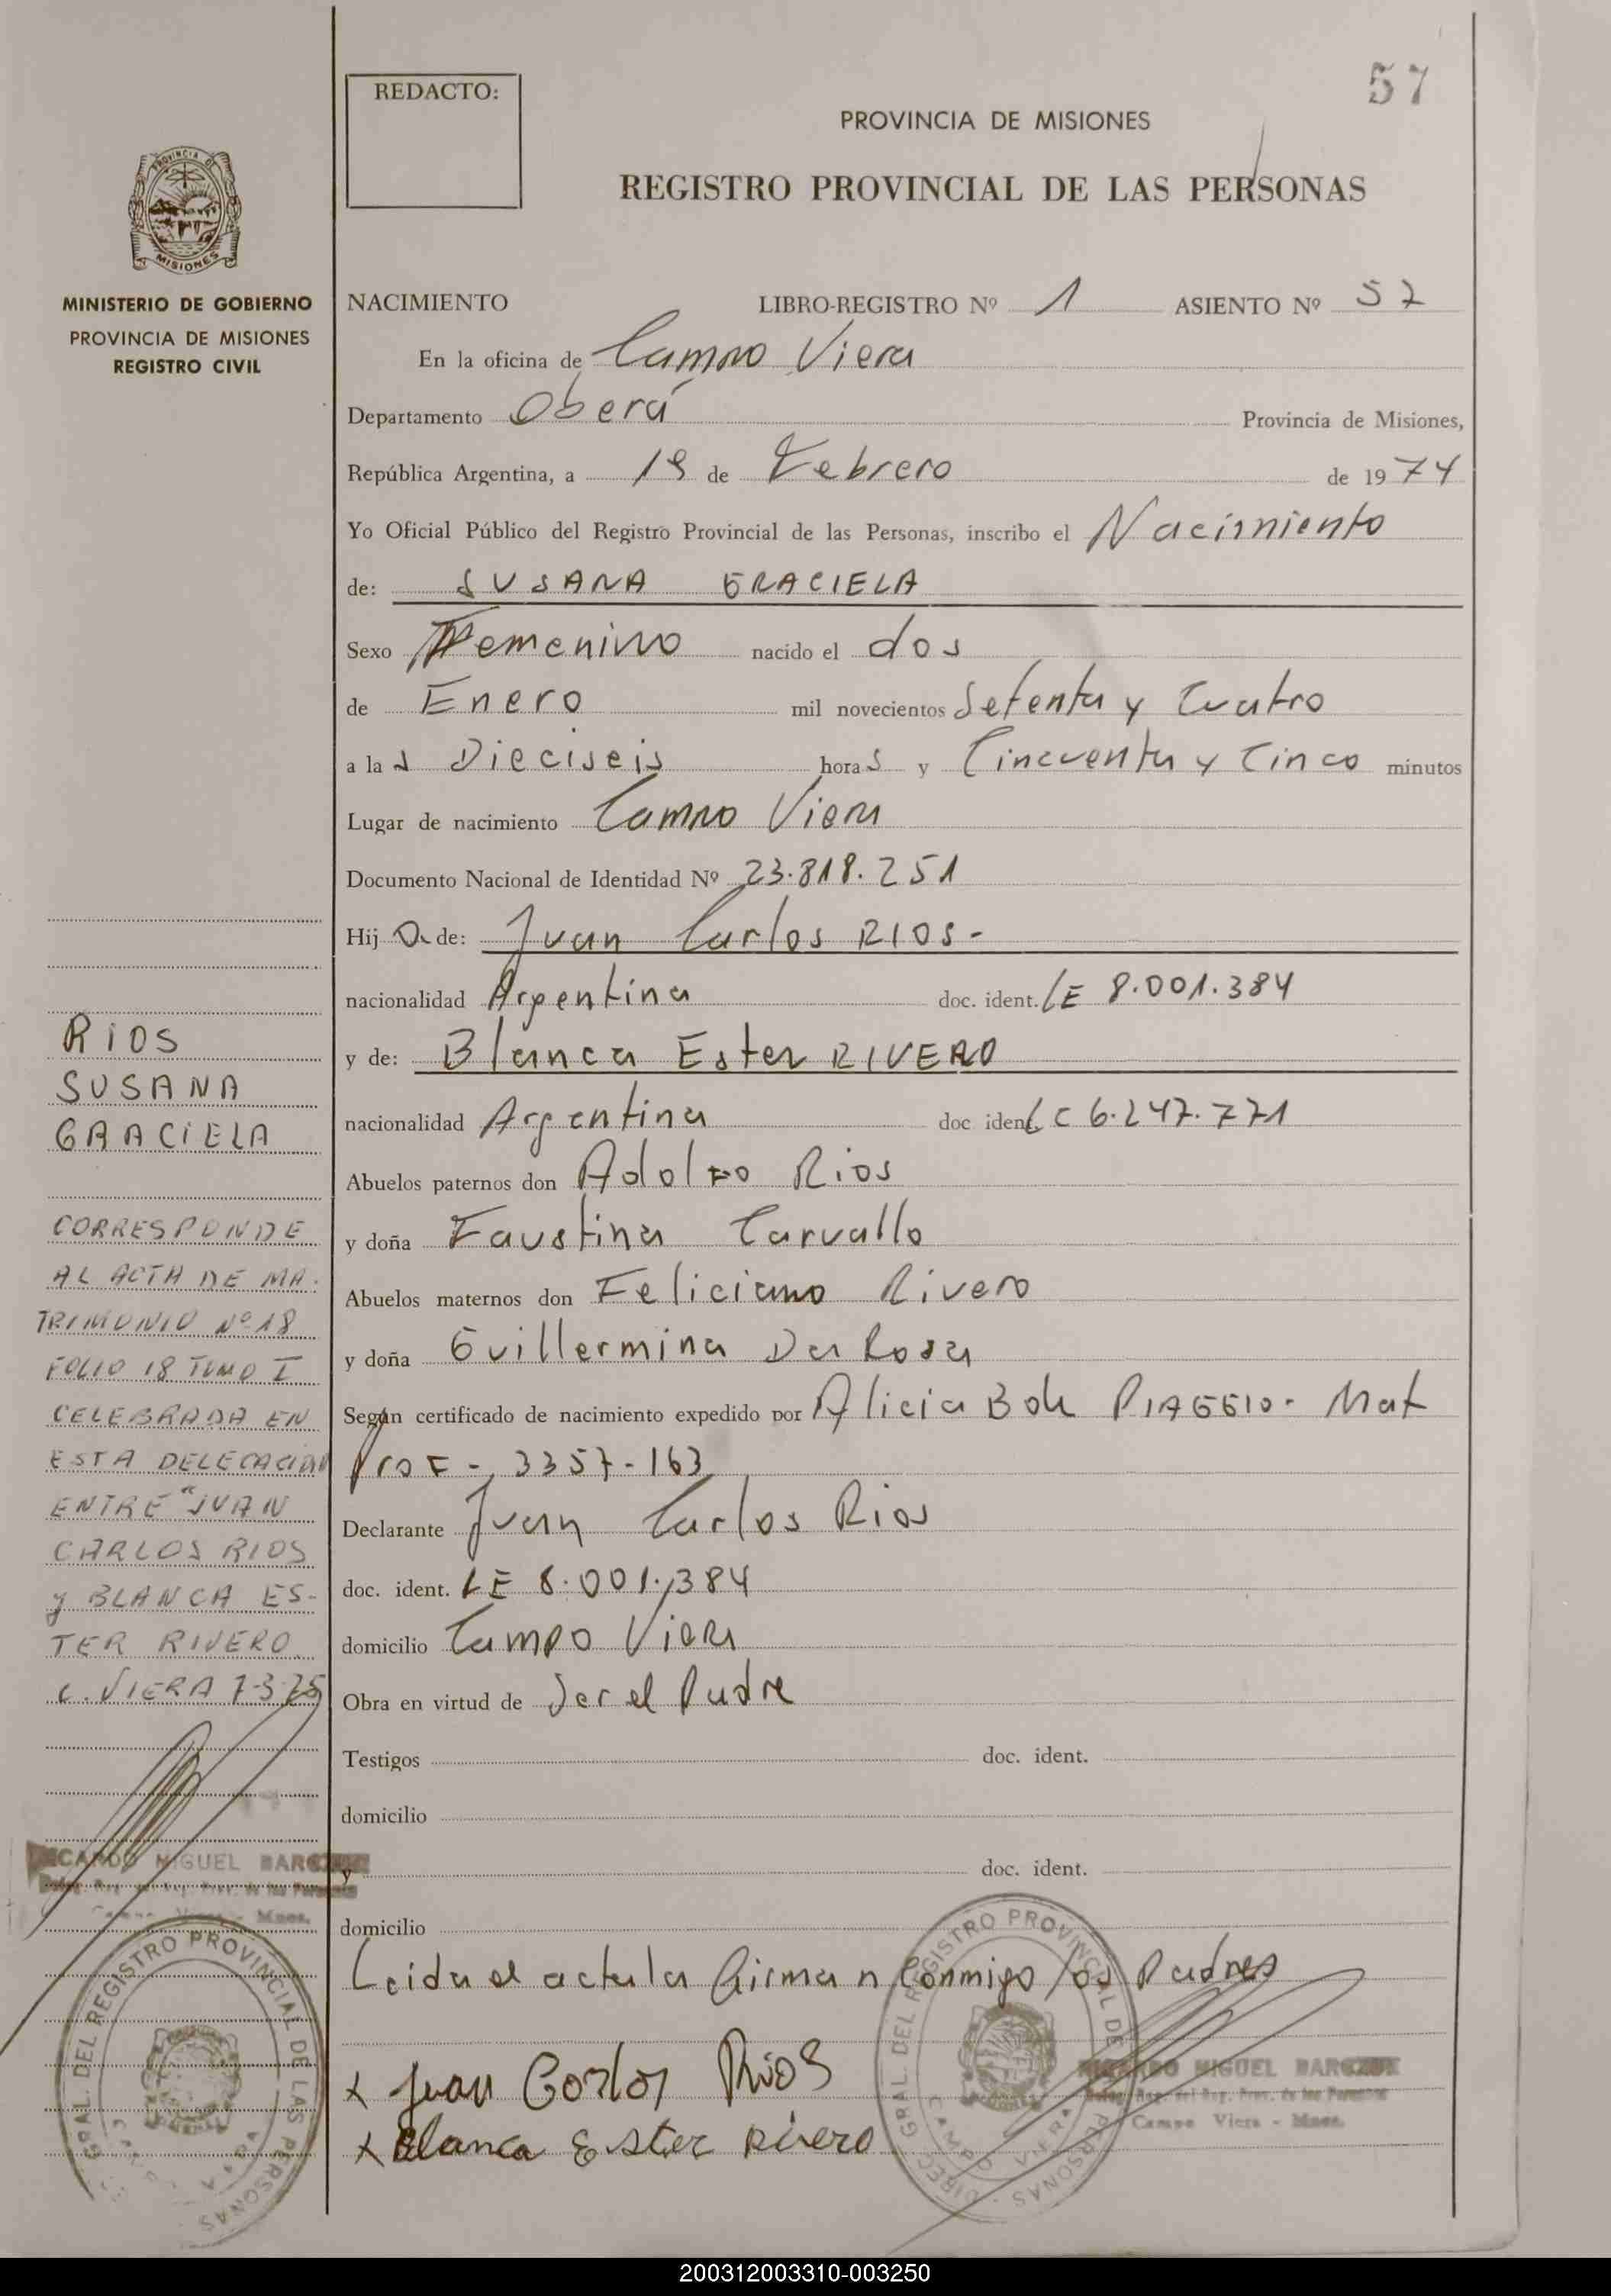 57
REDACTO:
PROVINCIA DE MISIONES
REGISTRO PROVINCIAL DE LAS PERSONAS
PROVINCIA DE
MISIONES
MINISTERIO DE GOBIERNO
PROVINCIA DE MISIONES
REGISTRO CIVIL
NACIMIENTO LIBRO-REGISTRO Nº 1 ASIENTO Nº 57
En la oficina de Campo Viera
Departamento Oberá Provincia de Misiones,
República Argentina, a 19 de Febrero de 1974
Yo Oficial Público del Registro Provincial de las Personas, inscribo el Nacimiento
de: SUSANA GRACIELA
Sexo Femenino nacido el dos
de Enero mil novecientos Setenta y Cuatro
a las Dieciseis horas y Cincuenta y Cinco minutos
Lugar de nacimiento Campo Viera
Documento Nacional de Identidad Nº 23.818.251
Hija de: Juan Carlos RIOS-
nacionalidad Argentina doc. ident. LE 8.001.384
y de: Blanca Ester RIVERO
nacionalidad Argentina doc ident. LC 6.247.771
Abuelos paternos don Adolfo Rios
y doña Faustina Carvallo
Abuelos maternos don Feliciano Rivero
y doña Guillermina Da Rosa
Según certificado de nacimiento expedido por Alicia B de PIAGGIO- Mat
Prof- 3357-163
Declarante Juan Carlos Rios
doc. ident. LE 8.001.384
domicilio Campo Viera
Obra en virtud de Ser el Padre
Testigos doc. ident.
domicilio
y doc. ident.
domicilio
Leida el acta la firman conmigo los Padres
x Juan Carlos Rios
x Blanca Ester Rivero
RICARDO MIGUEL
Campo Viera - Mnes.
DIREC. GRAL. DEL REGISTRO PROVINCIAL DE PERSONAS
CAMPO VIERA
RIOS
SUSANA
GRACIELA
CORRESPONDE
AL ACTA DE MA-
TRIMONIO Nº 18
FOLIO 18 TOMO I
CELEBRADA EN
ESTA DELEGACION
ENTRE "JUAN
CARLOS RIOS
y BLANCA ES-
TER RIVERO.
C. VIERA 7-3-75
RICARDO MIGUEL
Campo Viera - Mnes.
GRAL. DEL REGISTRO PROVINCIAL DE LAS PERSONAS
200312003310-003250